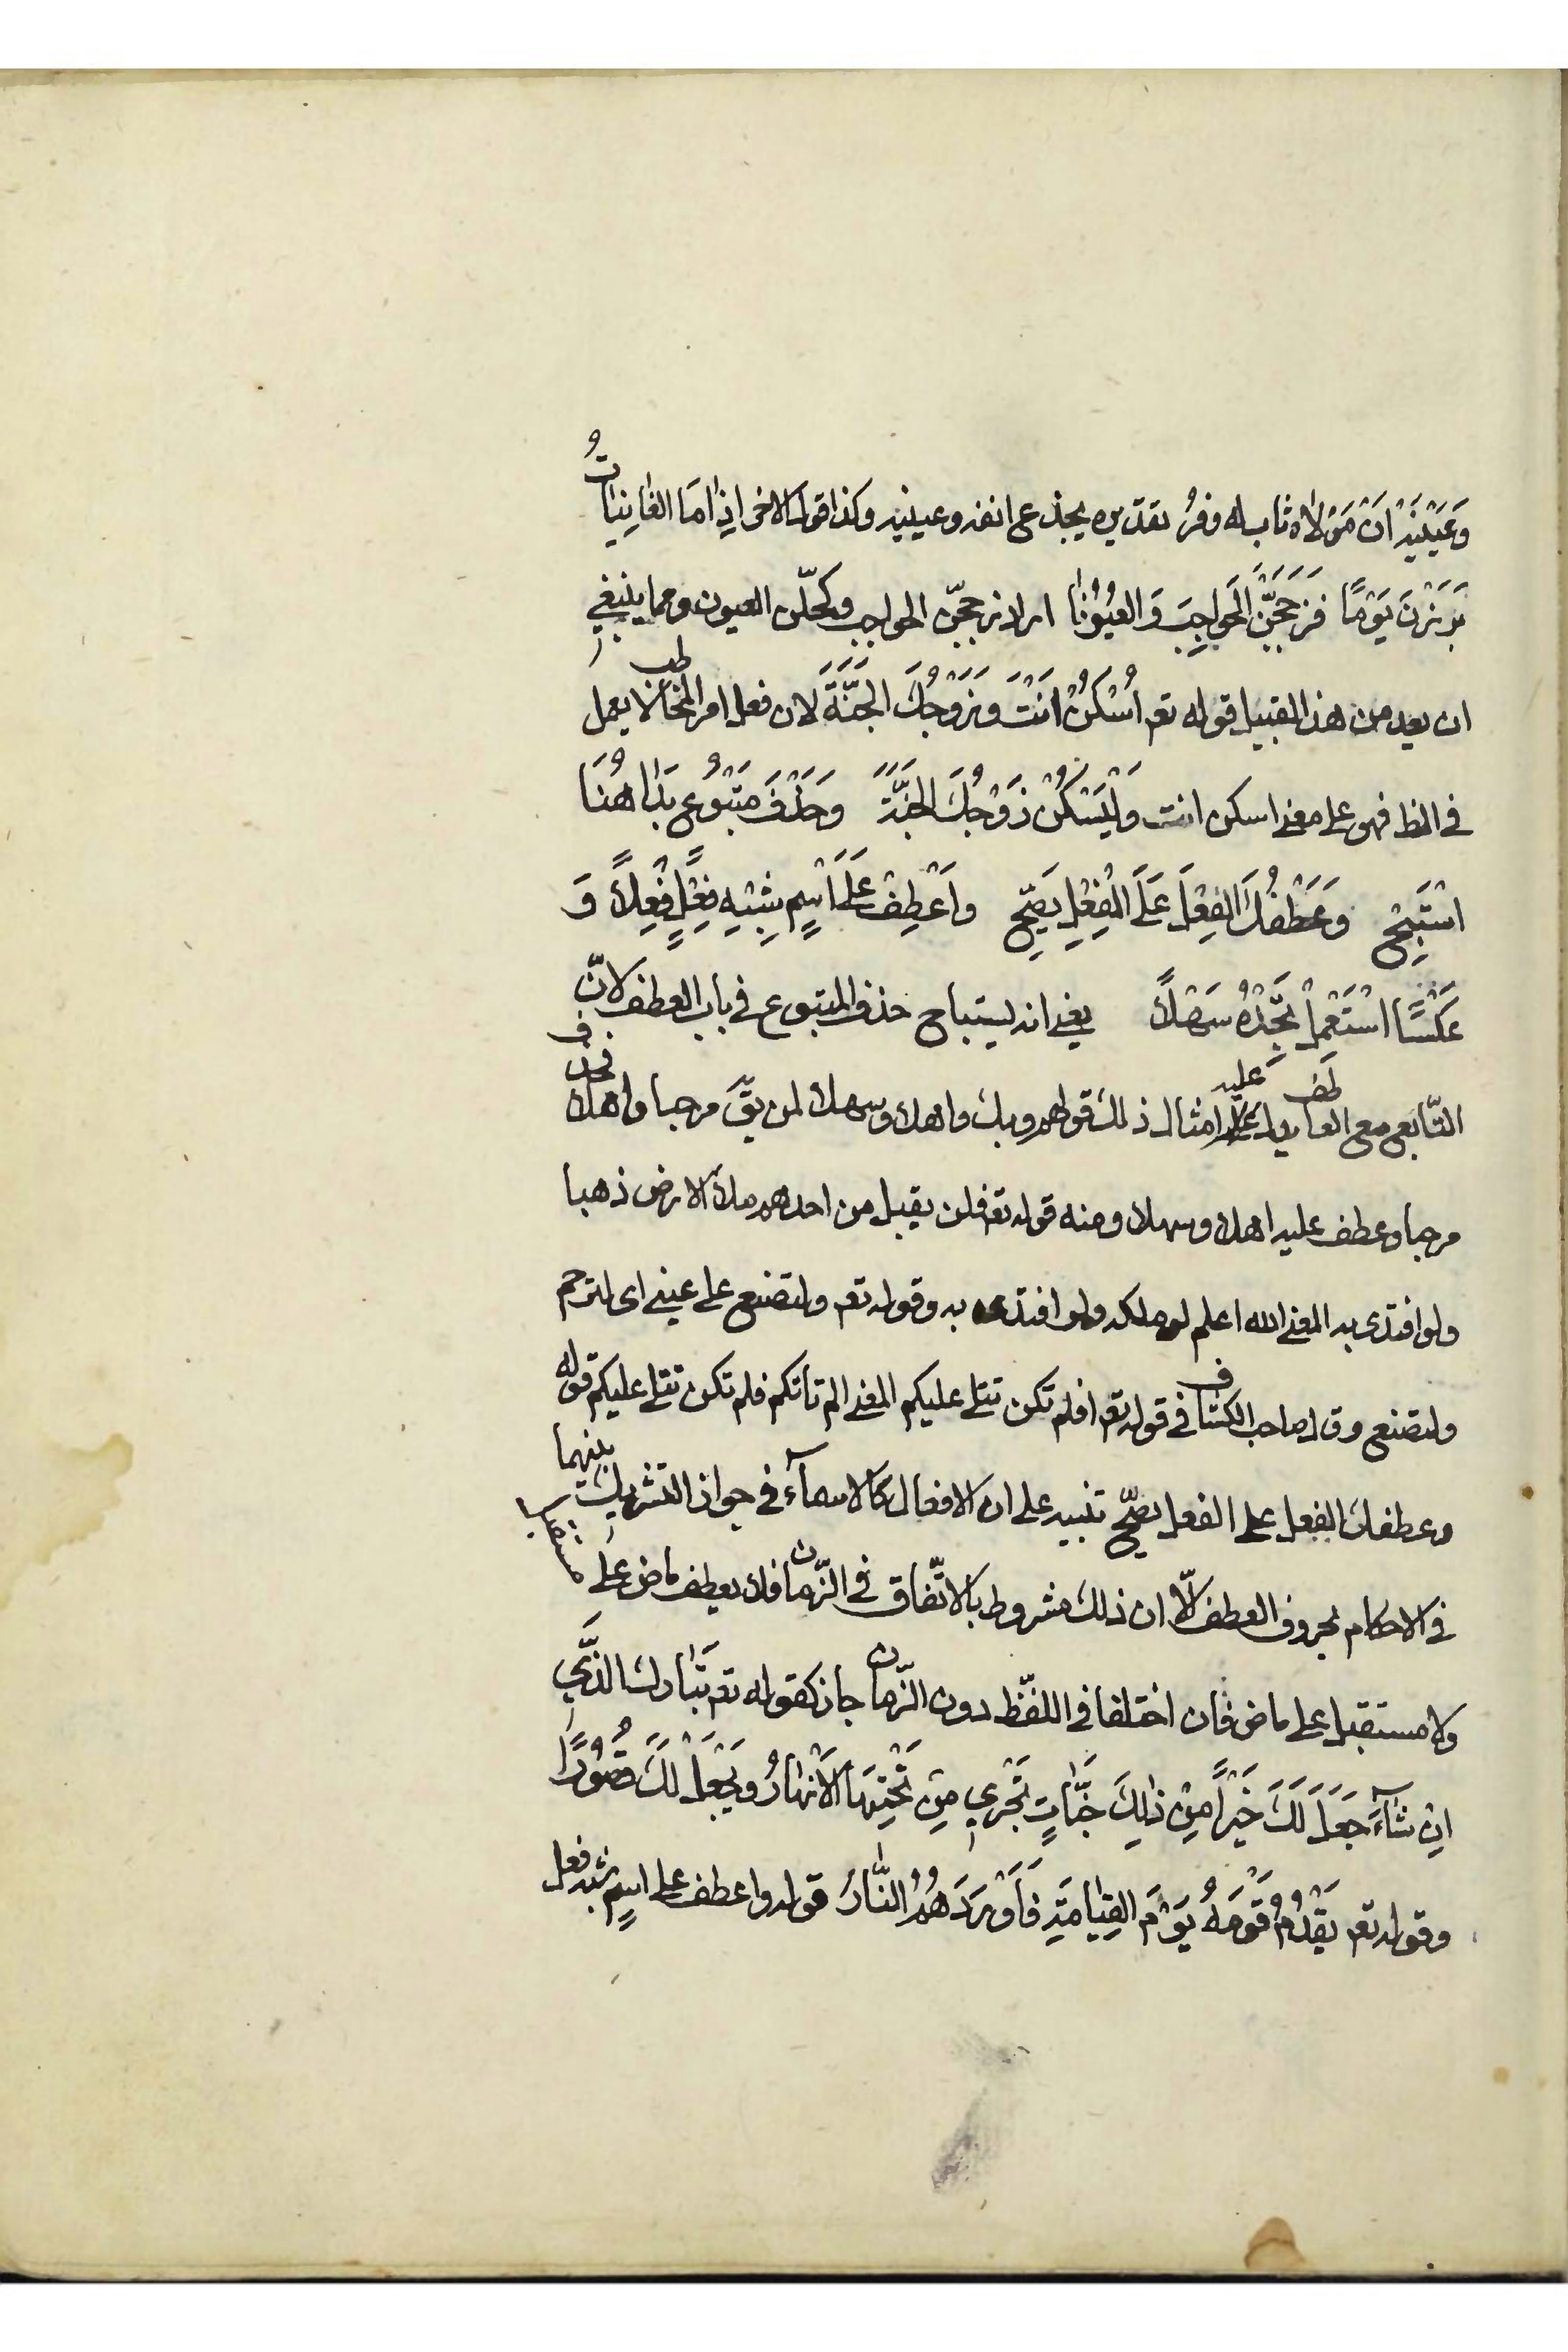 وَعَيْنَيْهِ اَنْ مَوْلاٰهُ ثاب له وفرُ تقديره يجذع انفه وعينيه وكذا قول الاخر اِذاٰ مَا الغٰانِيٰاتُ
بَرَزْنَ يَوْمًا فَزَجَّجْنَ الْحَوٰاجِبَ وَ العُيُوْنٰا اراد زججّن الحواجب وكحلّن العيون ومما ينبغي
ان يعد من هذا القبيل قوله تعم اُسْكُنْ اَنْتَ وَزَوْجُكَ الجَنَّةَ لان فعل امر المخاطب لا يعمل
في الظ فهو على معنى اسكن انت وَلْيَسْكُنْ زَوْجُكَ الجَنَّةَ وَحَذْفَ مَتْبُوْعٍ بَدٰا هُنَا
اسْتَبِحْ وَعَطْفُكَ الفِعْلَ عَلَى الْفِعْلِ يَصِحّ وَاَعْطِفْ عَلَى اسْمٍ شِبْهِ فِعْلٍ فِعْلاً وَ
عَكْسًا اسْتَعْمِلْ تَجِدْهُ سَهْلاً يعني انه يستباح حذف المتبوع في باب العطف لانّ
التّابع مع العاطف يدل عليه امثال ذلك قولهم وبك واهلا وسهلا لمن يقَ مرحبا واهلا فحذف
مرحبا وعطف عليه اهلا وسهلا ومنه قوله تعم فلن يقبل من احدهم ملأ الارض ذهبا
ولو افتدى به المعنى الله اعلم لو ملكه ولو افتدى به وقوله تعم ولتصنع على عيني اى لترحم
ولتصنع وقال صاحب الكشاف في قوله تعم افلم تكن تتلى عليكم المعنى الم تاتكم فلم تكن تتلى عليكم قوله
وعطفك الفعل على الفعل يصحّ تنبيه على ان الافعال كالاسمآء في جواز التشريك بينهما
في الاحكام بحروف العطف الّا ان ذلك مشروط بالاتّفاق في الزّمان فلا يعطف ماض على مستقبل
ولا مستقبل على ماض فان اختلفا في اللفّظ دون الزّمان جاز كقوله تعم تَبٰارك الذَّي
اِنْ شٰآءَ جَعَلَ لَكَ خَيْراً مِنْ ذٰلِكَ جَنّٰاتٍ تَجْري مِنْ تَحْتِهَا الْاَنْهٰارُ وَيَجْعَلْ لَكَ قُصُوْرًا
وقوله تعم يَقْدُمُ قَوْمَهُ يَوْمَ القِيٰامَةِ فَاَوْرَدَهُمُ النّٰارَ قوله واعطف على اسمٍ شبه فعل